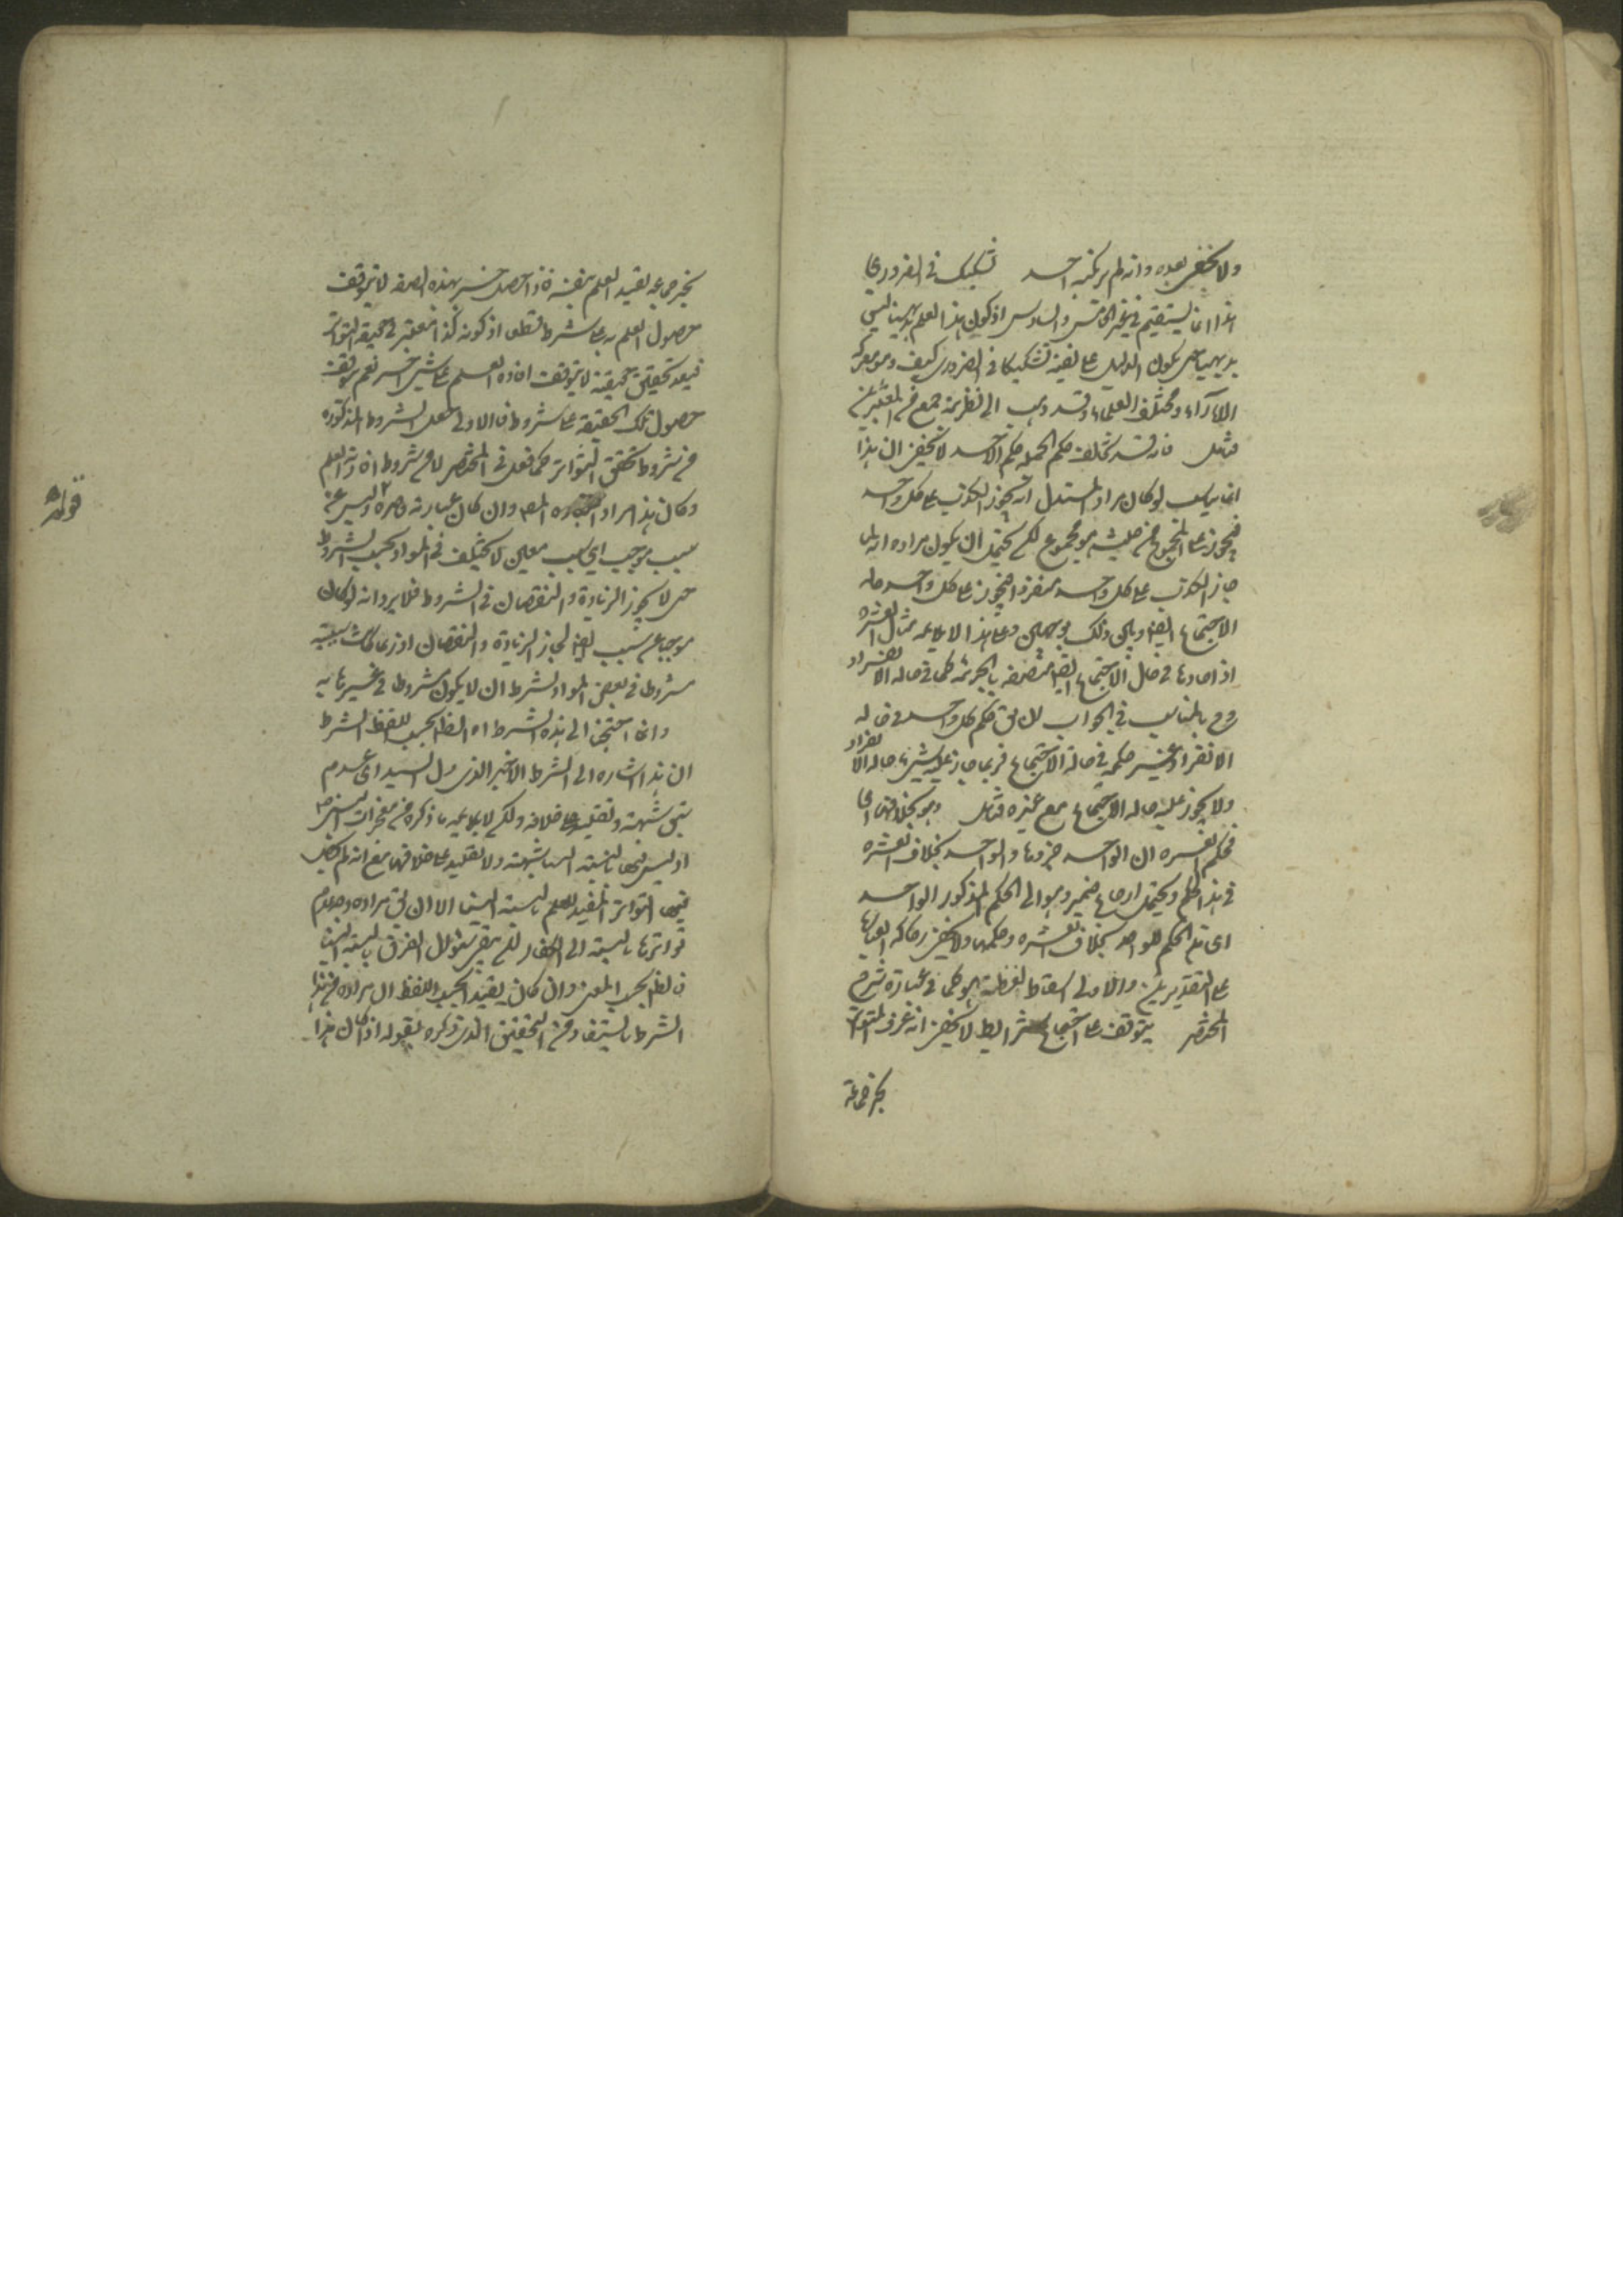 ولا يخفى بعده وانه لم يرتكبه احد تشكيك في الضروري
هذا انما يستقيم في غير الخامس والسادس اذ كون هذا العلم بديهيا ليس
بديهيا حتى يكون الدليل على نفيه تشكيكا في الضروري كيف وهو معركة
الآراء ومختلف العلماء وقد ذهب الى نظريته جمع من المعتبرين
فتأمل فانه قد يخالف حكم الجملة حكم الآحاد لا يخفى ان هذا
انما يناسب لو كان مراد المستدل انه يجوز الكذب على كل واحد
فيجوز على المجموع من حيث هو مجموع لكن يحتمل ان يكون مراده انه لما
جاز الكذب على كل واحد منفردا فيجوز على كل واحد حالة
الاجتماع ايضا وعلى هذا لا يلائمه مثال العشرة
اذ آحادها في حال الاجتماع ايضا متصفة بالجزئية كما في حالة الانفراد
وح المناسب في الجواب ان يق حكم كل واحد في حالة
الانفراد غير حكمه في حالة الاجتماع فربما جاز عليه شيء حالة الانفراد
ولا يجوز عليه حالة الاجتماع مع غيره فتأمل وهو بخلافها اى
فحكم العشرة ان الواحد جزءها والواحد بخلاف العشرة
في هذا الحكم ويحتمل ارجاع ضمير وهو الى الحكم المذكور الواحد
اى هذا الحكم للواحد بخلاف العشرة وحكمها ولا يخفى ركاكة العبارة
على التقديرين والاولى اسقاط لفظة هو كما في عبارة شرح
المختصر يتوقف على اجتماع شرايط لا يخفى انه عرف المتواتر
بخبر جماعة
بخبر جماعة يفيد العلم بنفسه فاذا حصل خبر بهذه الصفة لا يتوقف
حصول العلم به على شرط قطعا اذ كونه كذا معتبر في حقيقة التواتر
فبعد تحقق حقيقته لا يتوقف افادة العلم على شيء آخر نعم يتوقف
حصول تلك الحقيقة على شروط فالاولى جعل الشروط المذكورة
من شروط تحقق التواتر كما فعل في المختصر لا من شروط افادته العلم
وكان هذا مراد المص وان كان عبارته قاصرة وليس عن
سبب موجب اى سبب معين لا يختلف في المواد بحسب الشروط
حتى لا يجوز الزيادة والنقصان في الشروط فلا يرد انه لو كان
موجبا عن سبب ايضا لجاز الزيادة والنقصان اذ ربما كانت سببيته
مشروطا في بعض المواد بشرط ان لا يكون مشروطا في غيرها به
وانما احتجنا الى هذا الشرط اه الظ بحسب اللفظ
ان هذا اشارة الى الشرط الاخير الذى السيد اى عدم
سبق شبهة وتقليد على خلافه ولكن لا يلائمه ما ذكره من معجزات النبي ص
اذ ليس فيها بالنسبة الينا شبهة ولا تقليد على خلافها مع انه لم يحصل
فيها التواتر المفيد للعلم بالنسبة الينا الا ان يق مراده عدم
تواترها بالنسبة الى الكفار لكن يبقى سؤال الفرق بالنسبة الينا
فالظ بحسب المعنى وان كان بعيدا بحسب اللفظ ان مراده من هذا
الشرط ما يستفاد من التحقيق الذى ذكره بقوله اذا كان هذا
قوله